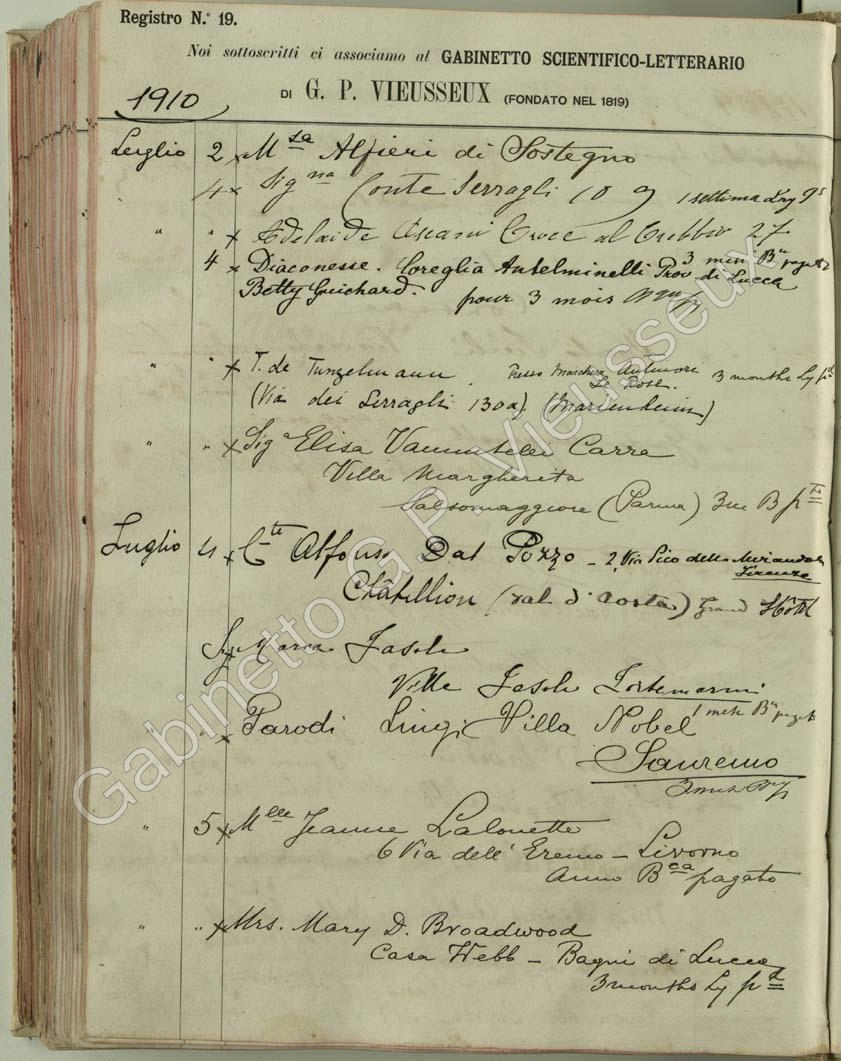 Registro N.° 19.
Noi sottoscritti ci associamo al GABINETTO SCIENTIFICO-LETTERARIO
DI G. P. VIEUSSEUX (FONDATO NEL 1819)
1910
Luglio 2 x Msa Alfieri di Sostegno
4 x Signa Conte Serragli 1 settima
" " x Adelaide Croce al 27
3 mesi Bu pagato
4 x Diaconesse. Coreglia Antelminelli Prov. di Lucca
Betty Guichard. pour 3 mois
" " x T. de Tunzelmann. Presso Le Rose. 3 months Ly pd
(Via dei Serragli 130a) (Marienheim)
" " x Siga Elisa Vannutelli Carra
Villa Margherita
Salsomaggiore (Parma) 3 m B pd
Luglio 4 x Cte Alfonso Dal Pozzo - 2, Via Pico della Mirandola
Firenze
Châtillion (val d'Aosta) Grand Hôtel
x Maria Fasola
Villa Fasola
1 mese Bu pagato
" " x Parodi Luigi Villa Nobel
Sanremo
3 mesi
" 5 x Mlle Jeanne Lalouette
6 Via dell' Eremo - Livorno
anno Bca pagato
" " x Mrs. Mary D. Broadwood
Casa Webb - Bagni di Lucca
3 months Ly pd
Gabinetto G. P. Vieusseux